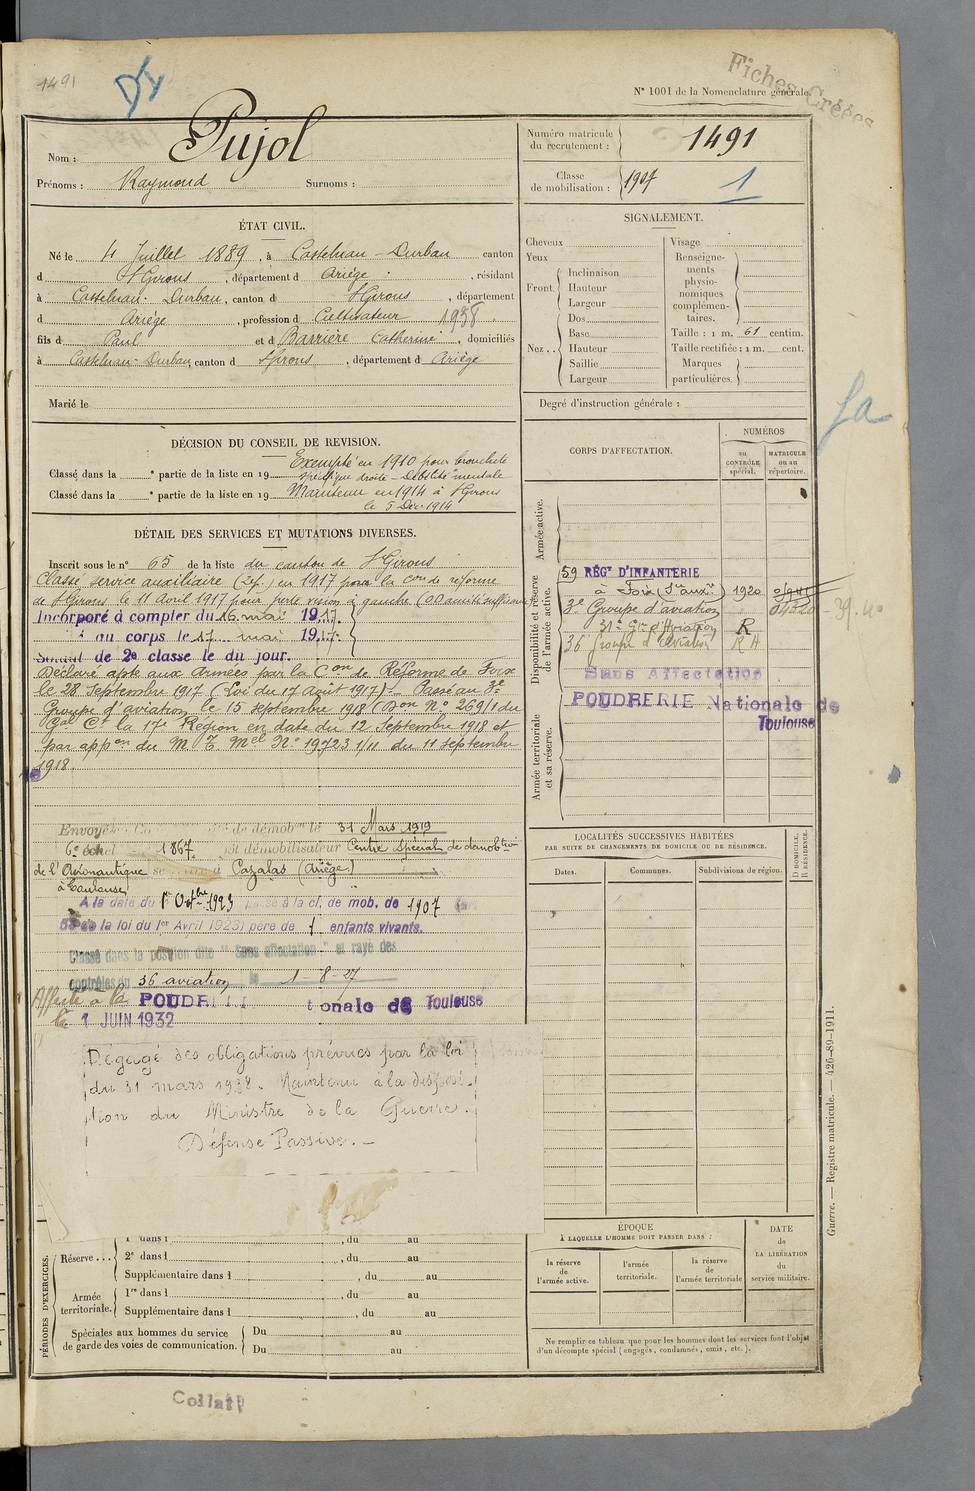 1491
Fiches Créées
N° 1001 de la Nomenclature générale.
Nom : Pujol
Prénoms : Raymond Surnoms :
Numéro matricule du recrutement : 1491
Classe de mobilisation : 1907 1
ÉTAT CIVIL.
Né le 4 Juillet 1889, à Castelnau-Durban canton
d St Girons, département d Ariège, résidant
à Castelnau-Durban, canton d St Girons, département
d Ariège, profession d Cultivateur 1938
fils d Paul et d Barrière Catherine, domiciliés
à Castelnau-Durban, canton d St Girons, département d Ariège
Marié le
SIGNALEMENT.
Cheveux
Yeux
Front. Inclinaison
Hauteur
Largeur
Nez .. Dos
Base
Hauteur
Saillie
Largeur
Visage
Renseigne-
ments
physio-
nomiques
complémen-
taires.
Taille : 1 m. 61 centim.
Taille rectifiée : 1 m. cent.
Marques
particulières.
Degré d'instruction générale :
DÉCISION DU CONSEIL DE REVISION.
Classé dans la e partie de la liste en 19 Exempté en 1910 pour bronchite
spécifique droite - Débilité mentale
Classé dans la e partie de la liste en 19 Maintenu en 1914 à St Girons
le 5 Déc. 1914
DÉTAIL DES SERVICES ET MUTATIONS DIVERSES.
Inscrit sous le n° 65 de la liste du canton de St Girons
Classé service auxiliaire (2 f.) en 1917 par la con de réforme
de St Girons le 11 Avril 1917 pour perte vision à gauche (OD acuité suffisante)
Incorporé à compter du 16 mai 1917.
au corps le 17 mai 1917.
Soldat de 2e classe le dit jour.
Déclaré apte aux Armées par la Con de Réforme de Foix
le 28 Septembre 1917 (Loi du 17 Août 1917) - Passé au 3e
Groupe d'aviation le 15 septembre 1918 (Don N° 26911 du
Gal Ct la 17e Région en date du 12 Septembre 1918 et
par appon du M. T. Mel N° 19723 1/11 du 11 septembre
1918.
Envoyé de démobon le 31 Mars 1919
6e échel 1867 démobilisateur Centre Spécial de démobtion
de l'Aéronautique se à Cazalas (Ariège)
à Toulouse
A la date du 1er Octbre 1923 passé à la cl. de mob. de 1907
de la loi du 1er Avril 1923) père de 1 enfants vivants.
Classé dans la position dite "Sans affectation" et rayé des
contrôles du 36 aviation le 1-8-27
Affecté à la POUDRE onale de Toulouse
le 1 JUIN 1932
Dégagé des obligations prévues par la loi
du 31 mars 1928. Maintenu à la disposi-
tion du Ministre de la Guerre.
Défense Passive.-
CORPS D'AFFECTATION.
NUMÉROS
au CONTRÔLE spécial.
MATRICULE ou au répertoire.
Armée active.
Disponibilité et réserve de l'armée active.
59 RÉGt D'INFANTERIE
à Foix (Sce auxre) 1920
3e Groupe d'aviation
31e Gpe d'Aviation R
36 Groupe d'Aviation R A
Sans Affectation
POUDRERIE Nationale de
Toulouse
Armée territoriale et sa réserve.
LOCALITÉS SUCCESSIVES HABITÉES
PAR SUITE DE CHANGEMENTS DE DOMICILE OU DE RÉSIDENCE.
Dates.
Communes.
Subdivisions de région.
D DOMICILE.
R RÉSIDENCE.
PÉRIODES D'EXERCICES.
Réserve ... 1re dans l , du au
2e dans l , du au
Supplémentaire dans l , du au
Armée territoriale. 1re dans l , du au
Supplémentaire dans l , du au
Spéciales aux hommes du service
de garde des voies de communication.
Du au
Du au
ÉPOQUE
À LAQUELLE L'HOMME DOIT PASSER DANS :
la réserve de l'armée active.
l'armée territoriale.
la réserve de l'armée territoriale
DATE de LA LIBÉRATION du service militaire.
Ne remplir ce tableau que pour les hommes dont les services font l'objet
d'un décompte spécial (engagés, condamnés, omis, etc.).
Guerre. — Registre matricule. — 426-89-1911.